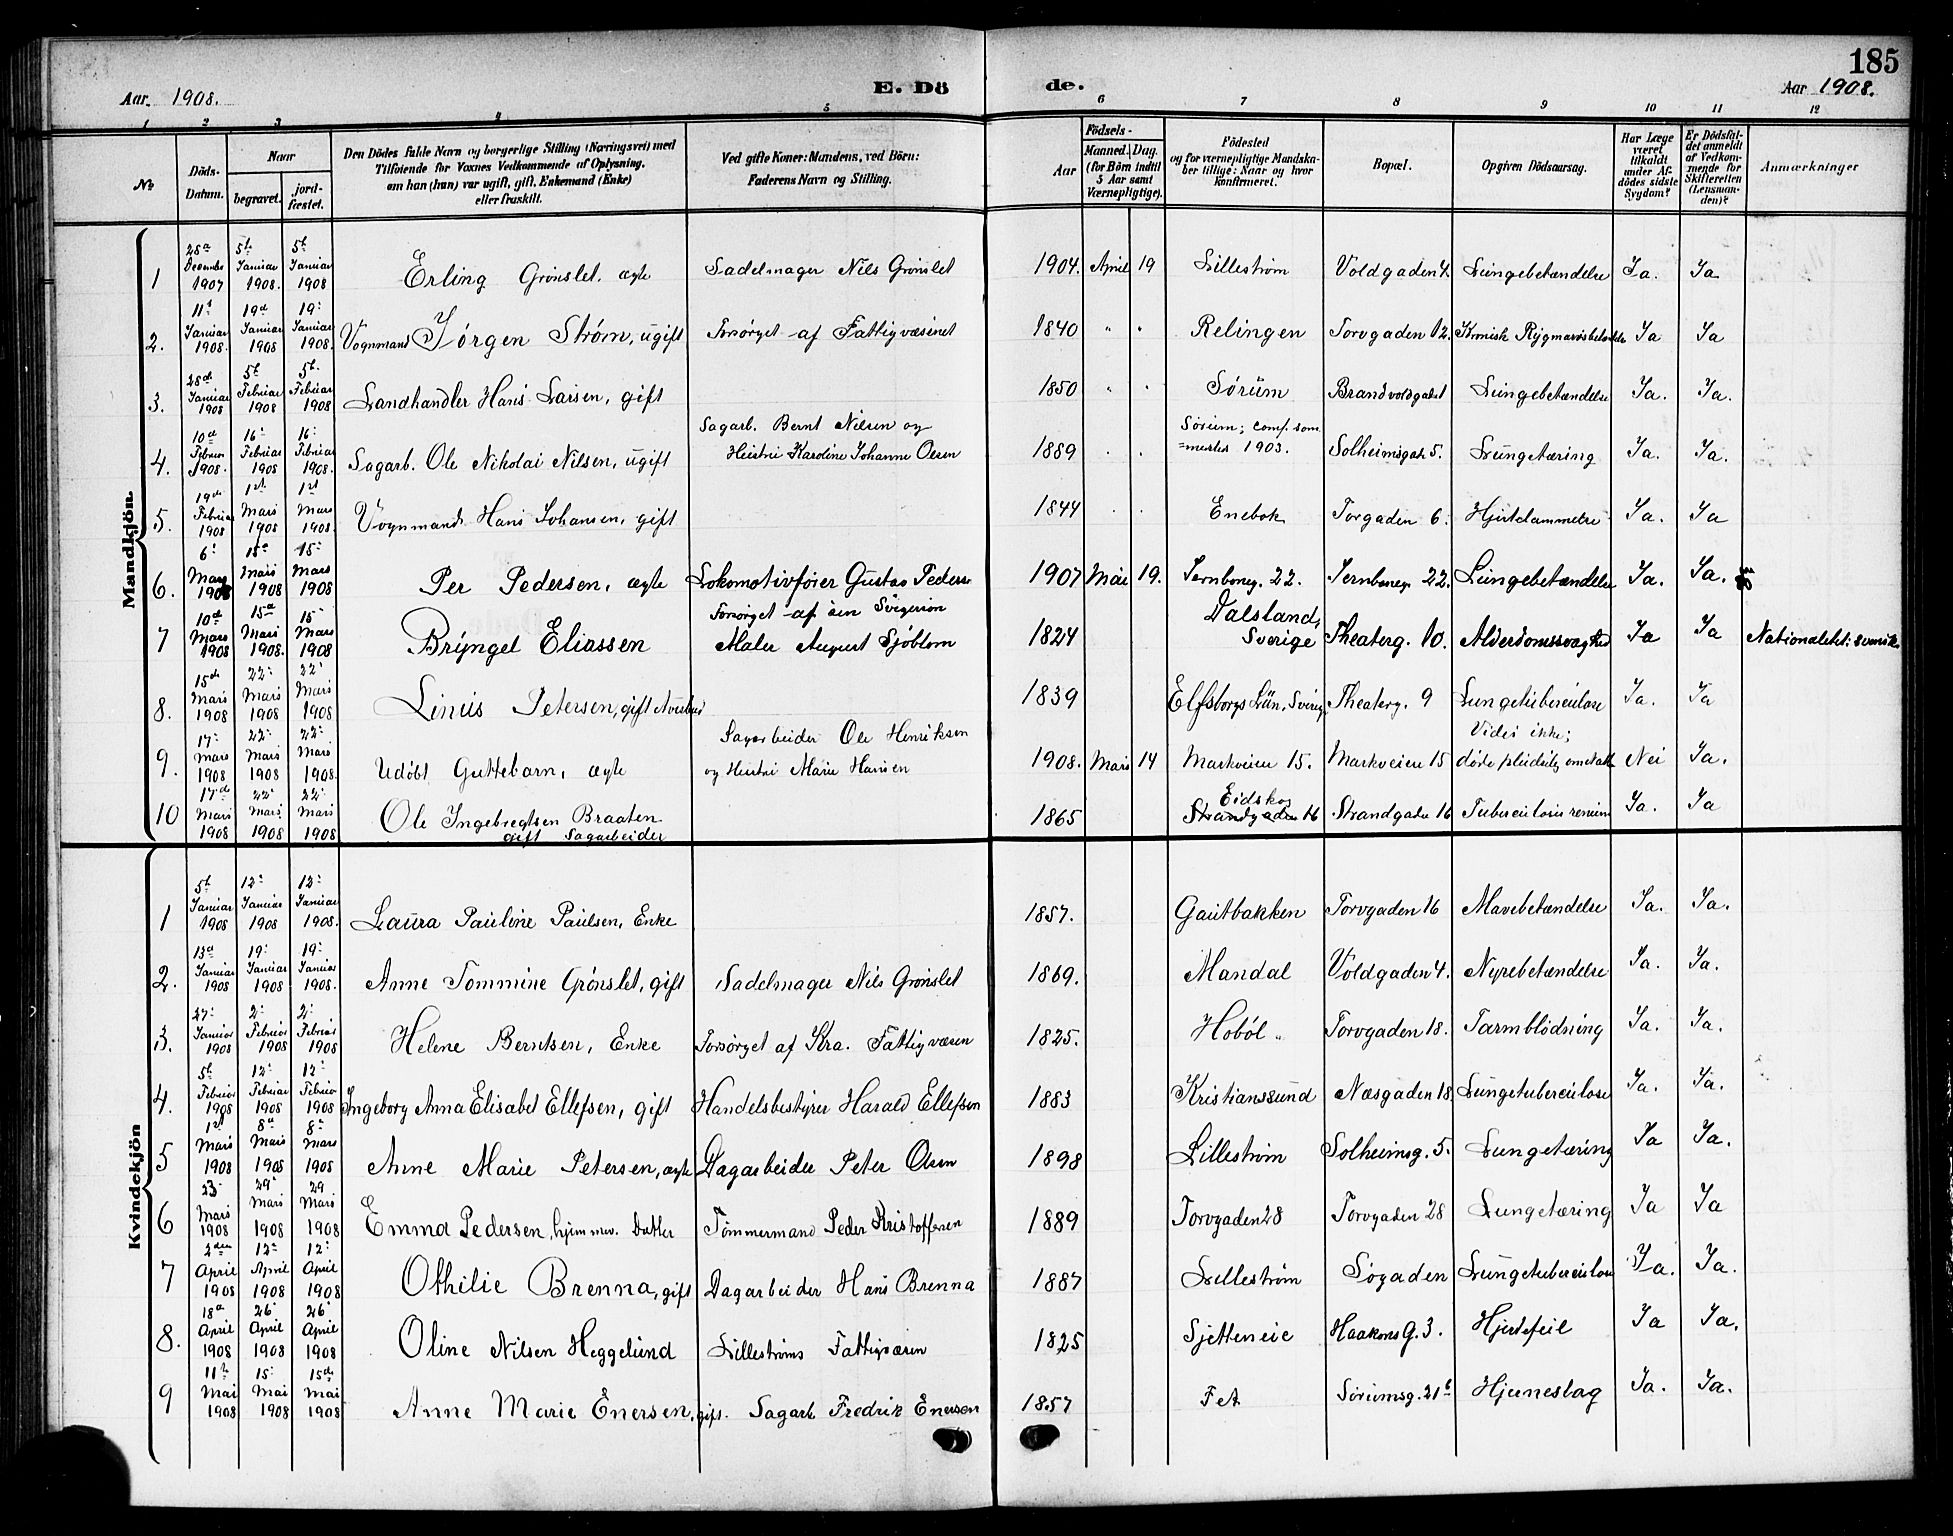 185
Aar. 1908.
E. Dö
de.
Aar 1908.
1 2 3 4 5 6 7 8 9 10 11 12
№
Döds-Datum.
Naar
begravet.
jord-fæstet.
Den Dödes fulde Navn og borgerlige Stilling (Næringsvei) med
Tilföiende for Voxnes Vedkommende af Oplysning,
om han (hun) var ugift, gift, Enkemand (Enke)
eller fraskilt.
Ved gifte Koner: Mandens, ved Börn:
Faderens Navn og Stilling.
Födsels-
Aar
Maaned.
Dag.
(for Börn indtil
5 Aar samt
Værnepligtige).
Födested
og for værnepligtige Mandska-
ber tillige: Naar og hvor
konfirmeret.
Bopæl.
Opgiven Dödsaarsag.
Har Læge
været
tilkaldt
under Af-
dödes sidste
Sygdom?
Er Dödsfal-
det anmeldt
af Vedkom-
mende for
Skifteretten
(Lensman-
den)?
Anmærkninger
Mandkjön.
1 28de December 1907 5te Januar 1908. 5te Januar 1908 Erling Grönslet. ægte Sadelmager Nils Grönslet 1904. April 19 Lillestrøm Voldgaden 4. Lungebetændelse Ja. Ja
2. 11te Januar 1908. 19de Januar 1908 19: Januar 1908. Vognmand Jörgen Strøm, ugift Forsørget af Fattigvæsenet 1840 " " Relingen Torvgaden 12. Kronisk Rygmarvsbetændelse Ja Ja
3. 28de Januar 1908 5te Februar 1908 5te Februar 1908 Landhandler Hans Larsen, gift 1850 " " Sørum Brandvoldgaden Lungebetændelse Ja. Ja.
4. 10de Februar 1908. 16: Februar 1908 16: Februar 1908. Sagarb. Ole Nikolai Nilsen, ugift Sagarb. Bernt Nilsen og
Hustru Karoline Johanne Olsen 1889 . . Sørum; conf. som=
=meren 1903. Solheimsgad. 5. Lungetæring Ja. Ja.
5. 19de Februar 1908 1st Mars 1908 1st Mars 1908. Vognmand Hans Johansen, gift 1844 . . Enebak Torgaden 6. Hjertelammelse Ja. Ja
6. 6: Mars 1908 15de Mars 1908 15: Mars 1908 Per Pedersen, ægte Lokomotivfører Gustav Peders 1907 Mai 19. Jernbaneg. 22. Jernbaneg. 22. Lungebetændelse Ja. Ja.
7 10de Mars 1908 15de Mars 1908. 15: Mars 1908 Bryngel Eliassen Forsørget af sin Svigersøn
Maler August Sjöblom 1824 Dalsland,
Sverige Theaterg. 10. Alderdomssvaghed Ja Ja Nationalitet: svensk.
8. 15de Mars 1908 22: Mars 1908 22: Mars 1908 Linus Petersen, gift 1839 Elfsborgs Län, Sverige Theaterg. 9 Lungetuberculose Ja. Ja
9. 17: Mars 1908 22: Mars 1908 22: Mars 1908. Udøbt Guttebarn, ægte Sagarbeider Ole Henriksen
og Hustru Marie Hansen 1908. Mars 14 Markveien 15. Markveien 15 Vides ikke;
døde pludselig Nei Ja.
10 17de Mars 1908 22: Mars 1908 22: Mars 1908 Ole Ingebregtsen Braaten
gift Sagarbeider 1865 Eidskog
Strandgaden 16 Strandgaden 16 Tuberculosis renum Ja. Ja
Kvindekjön
1 5te Januar 1908 12: Januar 1908 12: Januar 1908. Laura Pauline Paulsen, Enke 1857. Gautbakken Torvgaden 16 Mavebetændelse Ja. Ja.
2. 13de Januar 1908 19: Januar 1908 19: Januar 1908. Anne Tommine Grönslet, gift Sadelmager Nils Grönslet 1869. Mandal Voldgaden 4. Nyrebetændelse Ja. Ja.
3. 27: Januar 1908 2: Februar 1908 2: Februar 1908 Helene Berntsen, Enke Forsørget af Kra. Fattigvæsen 1825. Hoböl Torvgaden 18. Tarmblödning Ja. Ja.
4. 5te Februar 1908 12: Februar 1908 12: Februar 1908 Ingeborg Anna Elisabet Ellefsen, gift Handelsbestyrer Harald Ellefsen 1883 Kristianssund Næsgaden 18. Lungetuberculose Ja. Ja.
5 1st Mars 1908 8de Mars 1908 8de Mars 1908 Anne Marie Petersen, ægte Dagarbeider Peter Olsen 1898 Lillestrøm Solheimsg. 5. Lungetæring Ja Ja.
6 23: Mars 1908 29: Mars 1908 29 Mars 1908 Emma Pedersen, hjemmev. Datter Tømmermand Peder Kristoffersen 1889 Torvgaden 28 Torvgaden 28 Lungetæring Ja Ja
7 2den April 1908 12: April 1908 12: April 1908 Othilie Brenna, gift Dagarbeider Hans Brenna 1887 Lillestrøm Søgaden Lungetuberculose Ja. Ja.
8. 18de April 1908 26: April 1908 26: April 1908 Oline Nilsen Heggelund Lillestrøms Fattigvæsen 1825 Sjetteneie Haakons G. 3. Hjertefeil Ja Ja.
9 11te Mai 1908 15: Mai 1908 15de Mai 1908 Anne Marie Enersen, gift. Sagarb. Fredrik Enersen 1857 Fet Sørumsg. 21b Hjerneslag Ja. Ja.